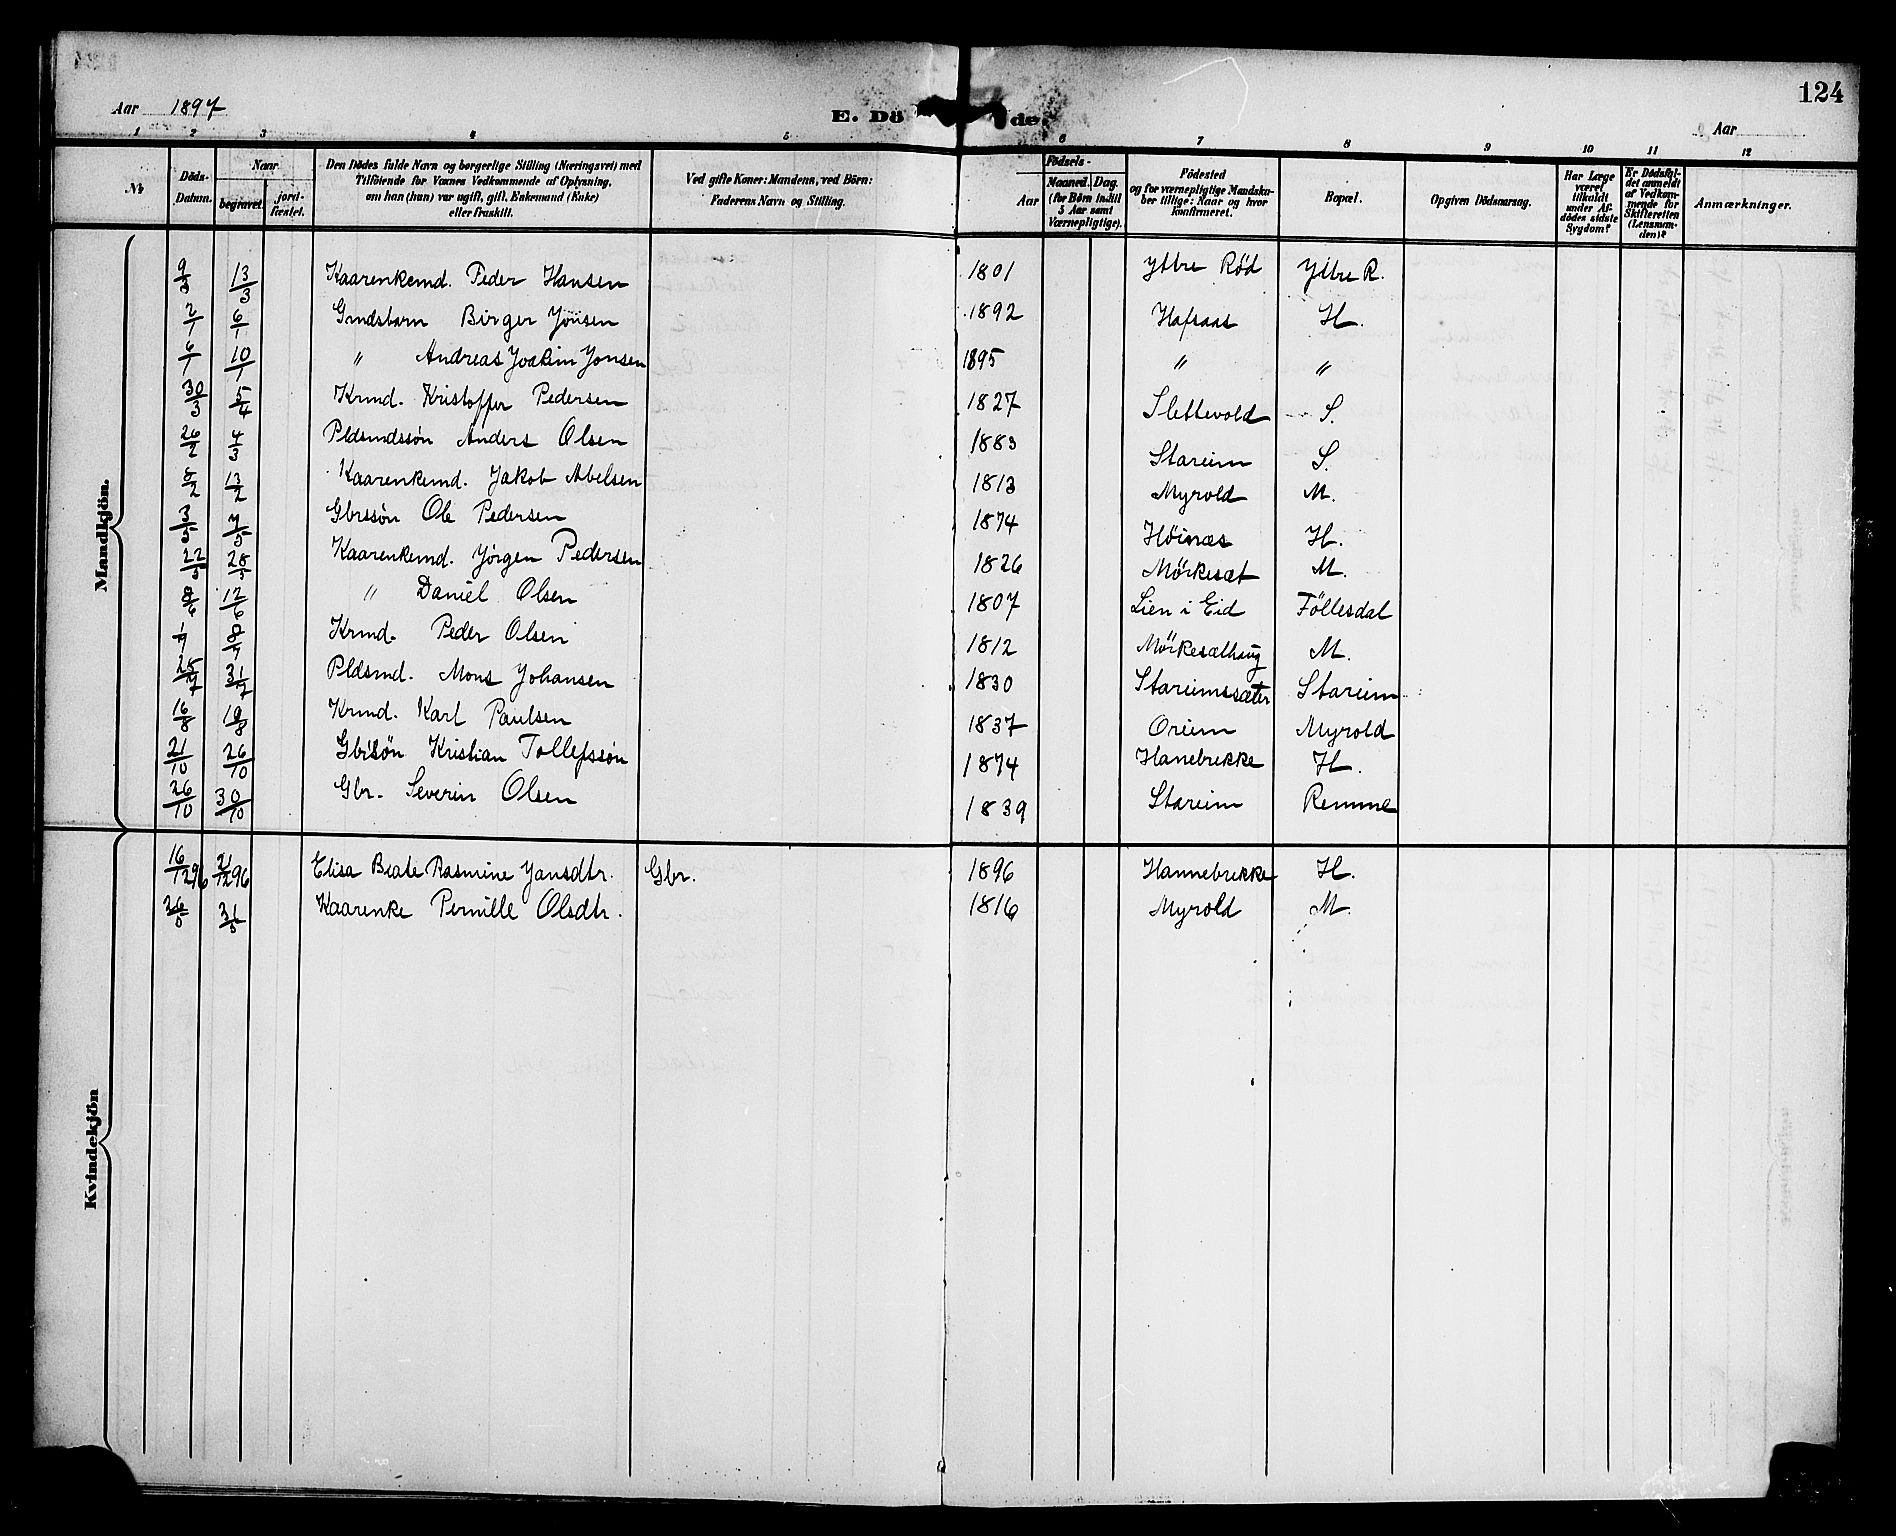 124
Aar 1897 E. Dö de. Aar
1 2 3 4 5 6 7 8 9 10 11 12
No
Döds-Datum.
Naar
begravet. jord-fæstet.
Den Dödes fulde Navn og borgerlige Stilling (Næringsvei) med
Tilföiende for Voxnes Vedkommende af Oplysning,
om han (hun) var ugift, gift, Enkemand (Enke)
eller fraskilt.
Ved gifte Koner: Mandens, ved Börn:
Faderens Navn og Stilling.
Födsels-
Aar Maaned. Dag.
(for Börn indtil
5 Aar samt
Værnepligtige).
Födested
og for værnepligtige Mandska-
ber tillige: Naar og hvor
konfirmeret.
Bopæl.
Opgiven Dödsaarsag.
Har Læge
været
tilkaldt
under Af-
dödes sidste
Sygdom?
Er Dödsfal-
det anmeldt
af Vedkom-
mende for
Skifteretten
(Lensman-
den)?
Anmærkninger.
Mandkjön.
9/3 13/3 Kaarenkemd. Peder Hansen 1801 Yttre Röd Yttre R.
2/1 6/1 Gmdsbarn Birger Jonsen 1892 Hafsaas H.
6/1 10/1 " Andreas Joakim Jonsen 1895 " "
30/3 5/4 Krmd. Kristoffer Pedersen 1827 Slettevold S.
26/2 4/3 Pldsmdssön Anders Olsen 1883 Stareim S.
8/2 13/2 Kaarenkemd. Jakob Abelsen 1813 Myrold M.
3/5 7/5 Gbrssön Ole Pedersen 1874 Höinæs H.
22/5 28/5 Kaarenkemd. Jörgen Pedersen 1826 Mörkesæt M.
8/6 12/6 " Daniel Olsen 1807 Lien i Eid Föllesdal
1/7 8/7 Krmd. Peder Olsen 1812 Mörkesæthaug M.
25/7 31/7 Pldsmd. Mons Johansen 1830 Stareimssæter Stareim
16/8 19/8 Krmd. Karl Paulsen 1837 Oreim Myrold
21/10 26/10 Gbrsön Kristian Tollefssön 1874 Hanebrekke H.
26/10 30/10 Gbr. Severin Olsen 1839 Stareim Remme
Kvindekjön
16/12 96 21/12 96 Elisa Beate Rasmine Jansdtr. Gbr. 1896 Hannebrekke H.
26/5 31/5 Kaarenke Pernille Olsdtr. 1816 Myrold M.